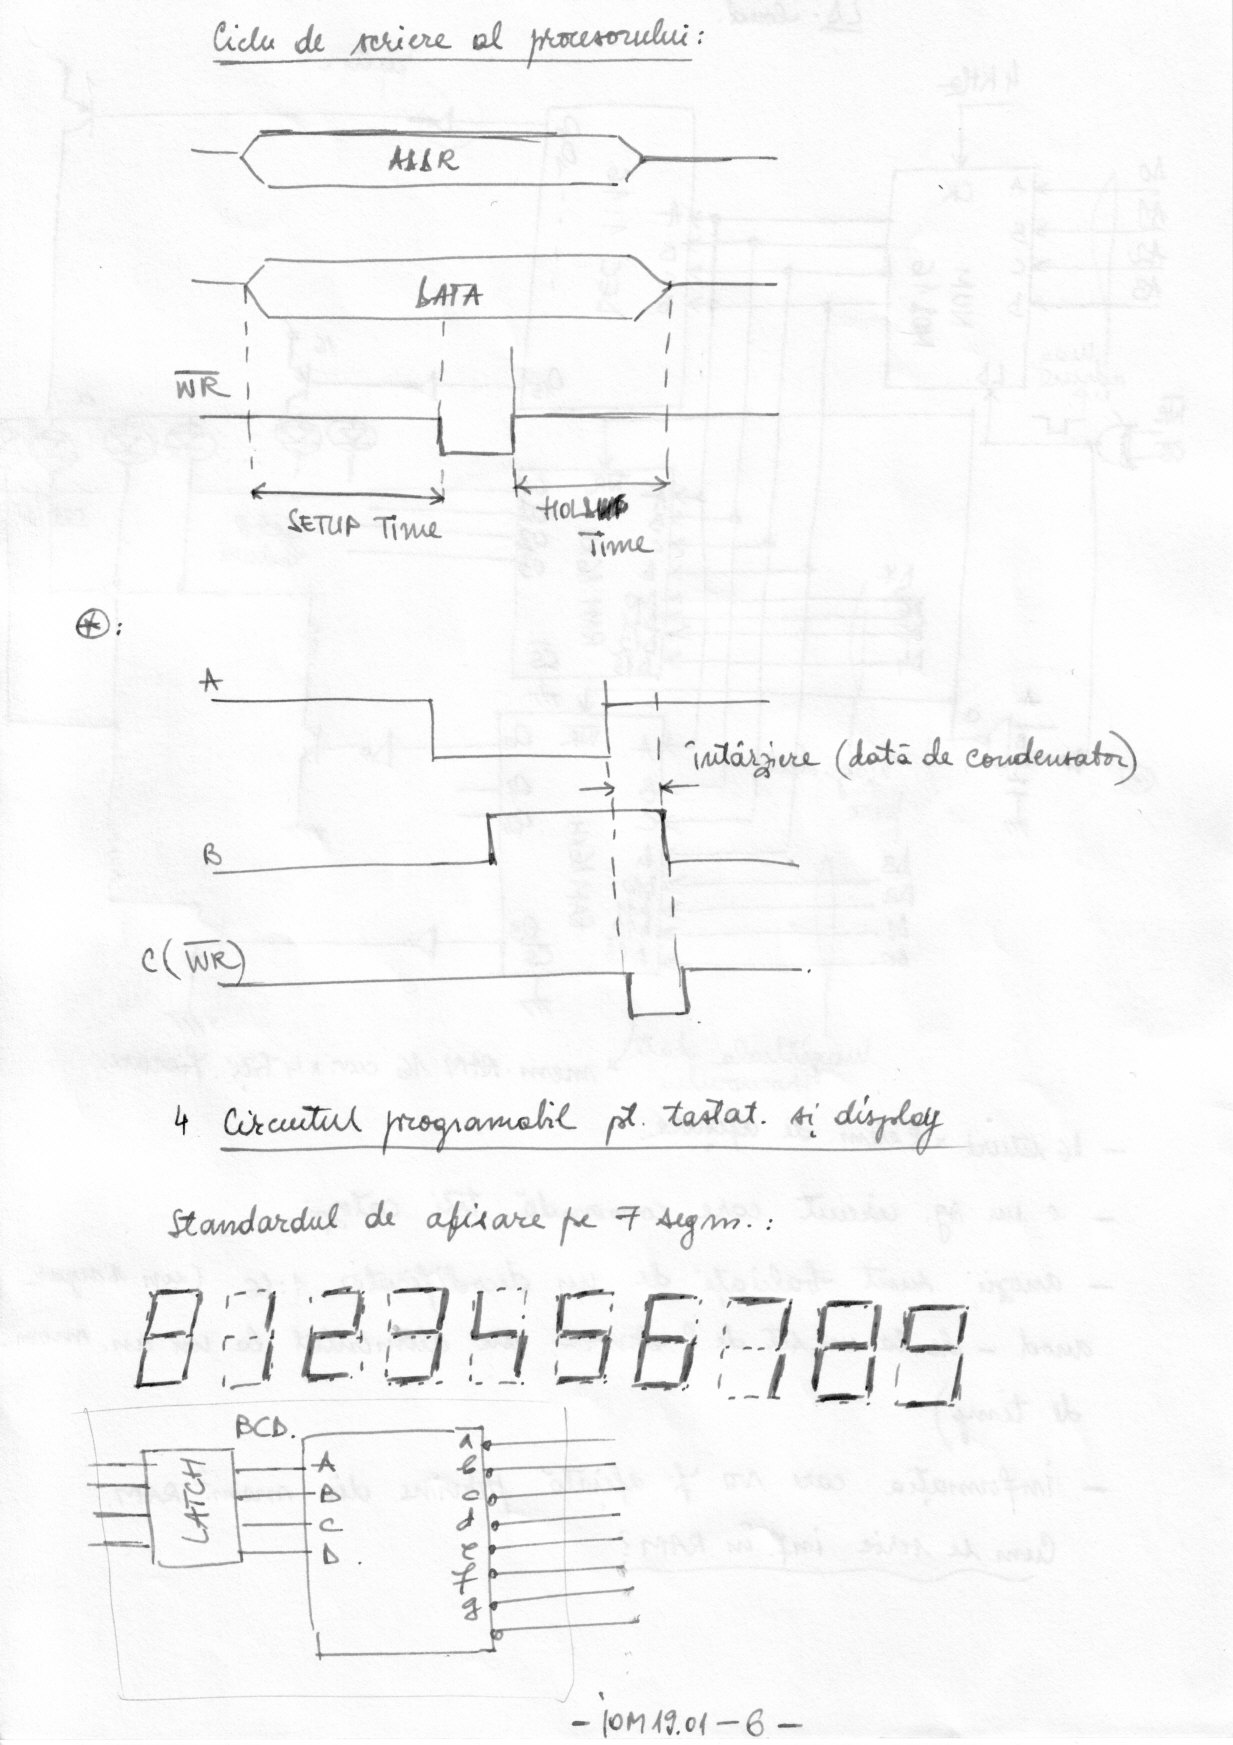 Ciclu de scriere al procesorului:
ADDR
DATA
WR
SETUP Time
HOLD
Time
*:
A
întârziere (dată de condensator)
B
C (WR)
4 Circuitul programabil pt. tastat. și display
Standardul de afisare pe 7 segm.:
0 1 2 3 4 5 6 7 8 9
BCD.
LATCH
A
B
C
D.
a
b
c
d
e
f
g
- IOM19.01 - 6 -